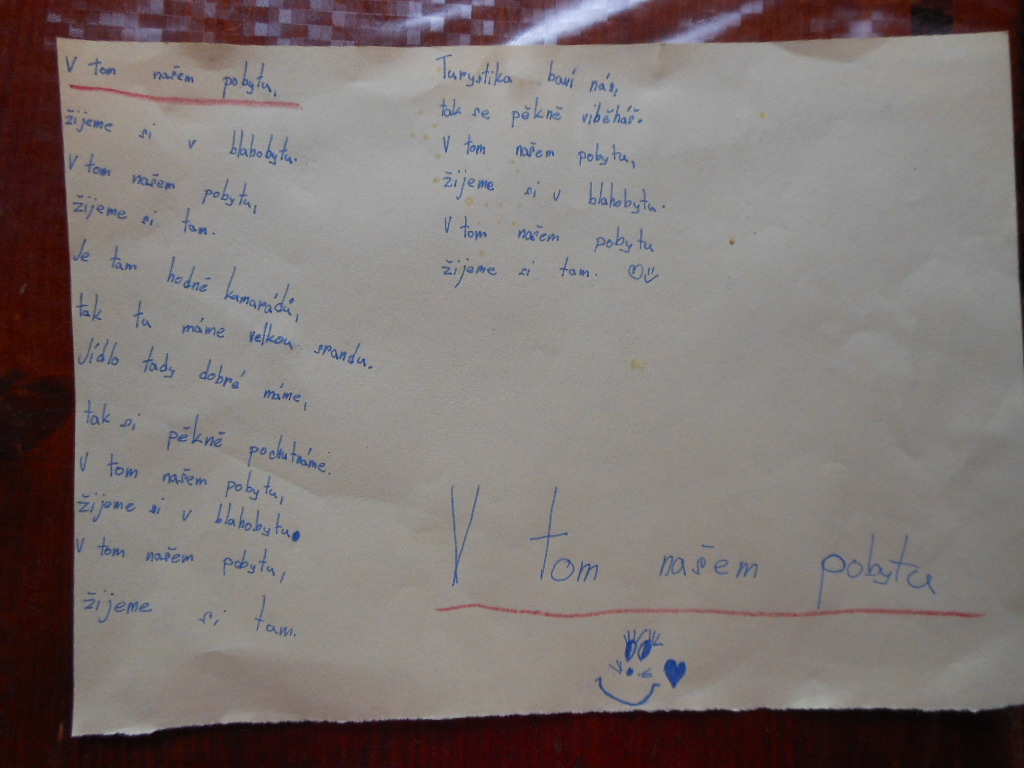 V tom našem pobytu,
žijeme si v blahobytu.
V tom našem pobytu,
žijeme si tam.
Je tam hodně kamarádů,
tak tu máme velkou srandu.
Jídlo tady dobré máme,
tak si pěkně pochutnáme.
V tom našem pobytu,
žijeme si v blahobytu.
V tom našem pobytu,
žijeme si tam.
Turystika baví nás,
tak se pěkně viběháš.
V tom našem pobytu,
žijeme si v blahobytu.
V tom našem pobytu
žijeme si tam.
V tom našem pobytu